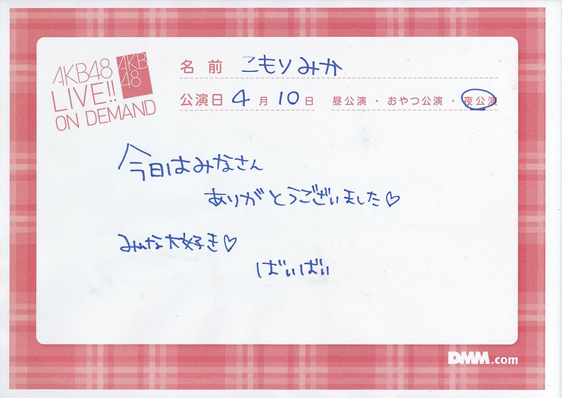 AKB48
LIVE!!
ON DEMAND
AKB
48
名前 こもりみか
公演日 4月10日 昼公演・おやつ公演・夜公演
今日はみなさん
ありがとうございました♡
みんな大好き♡
ばいばい
DMM.com